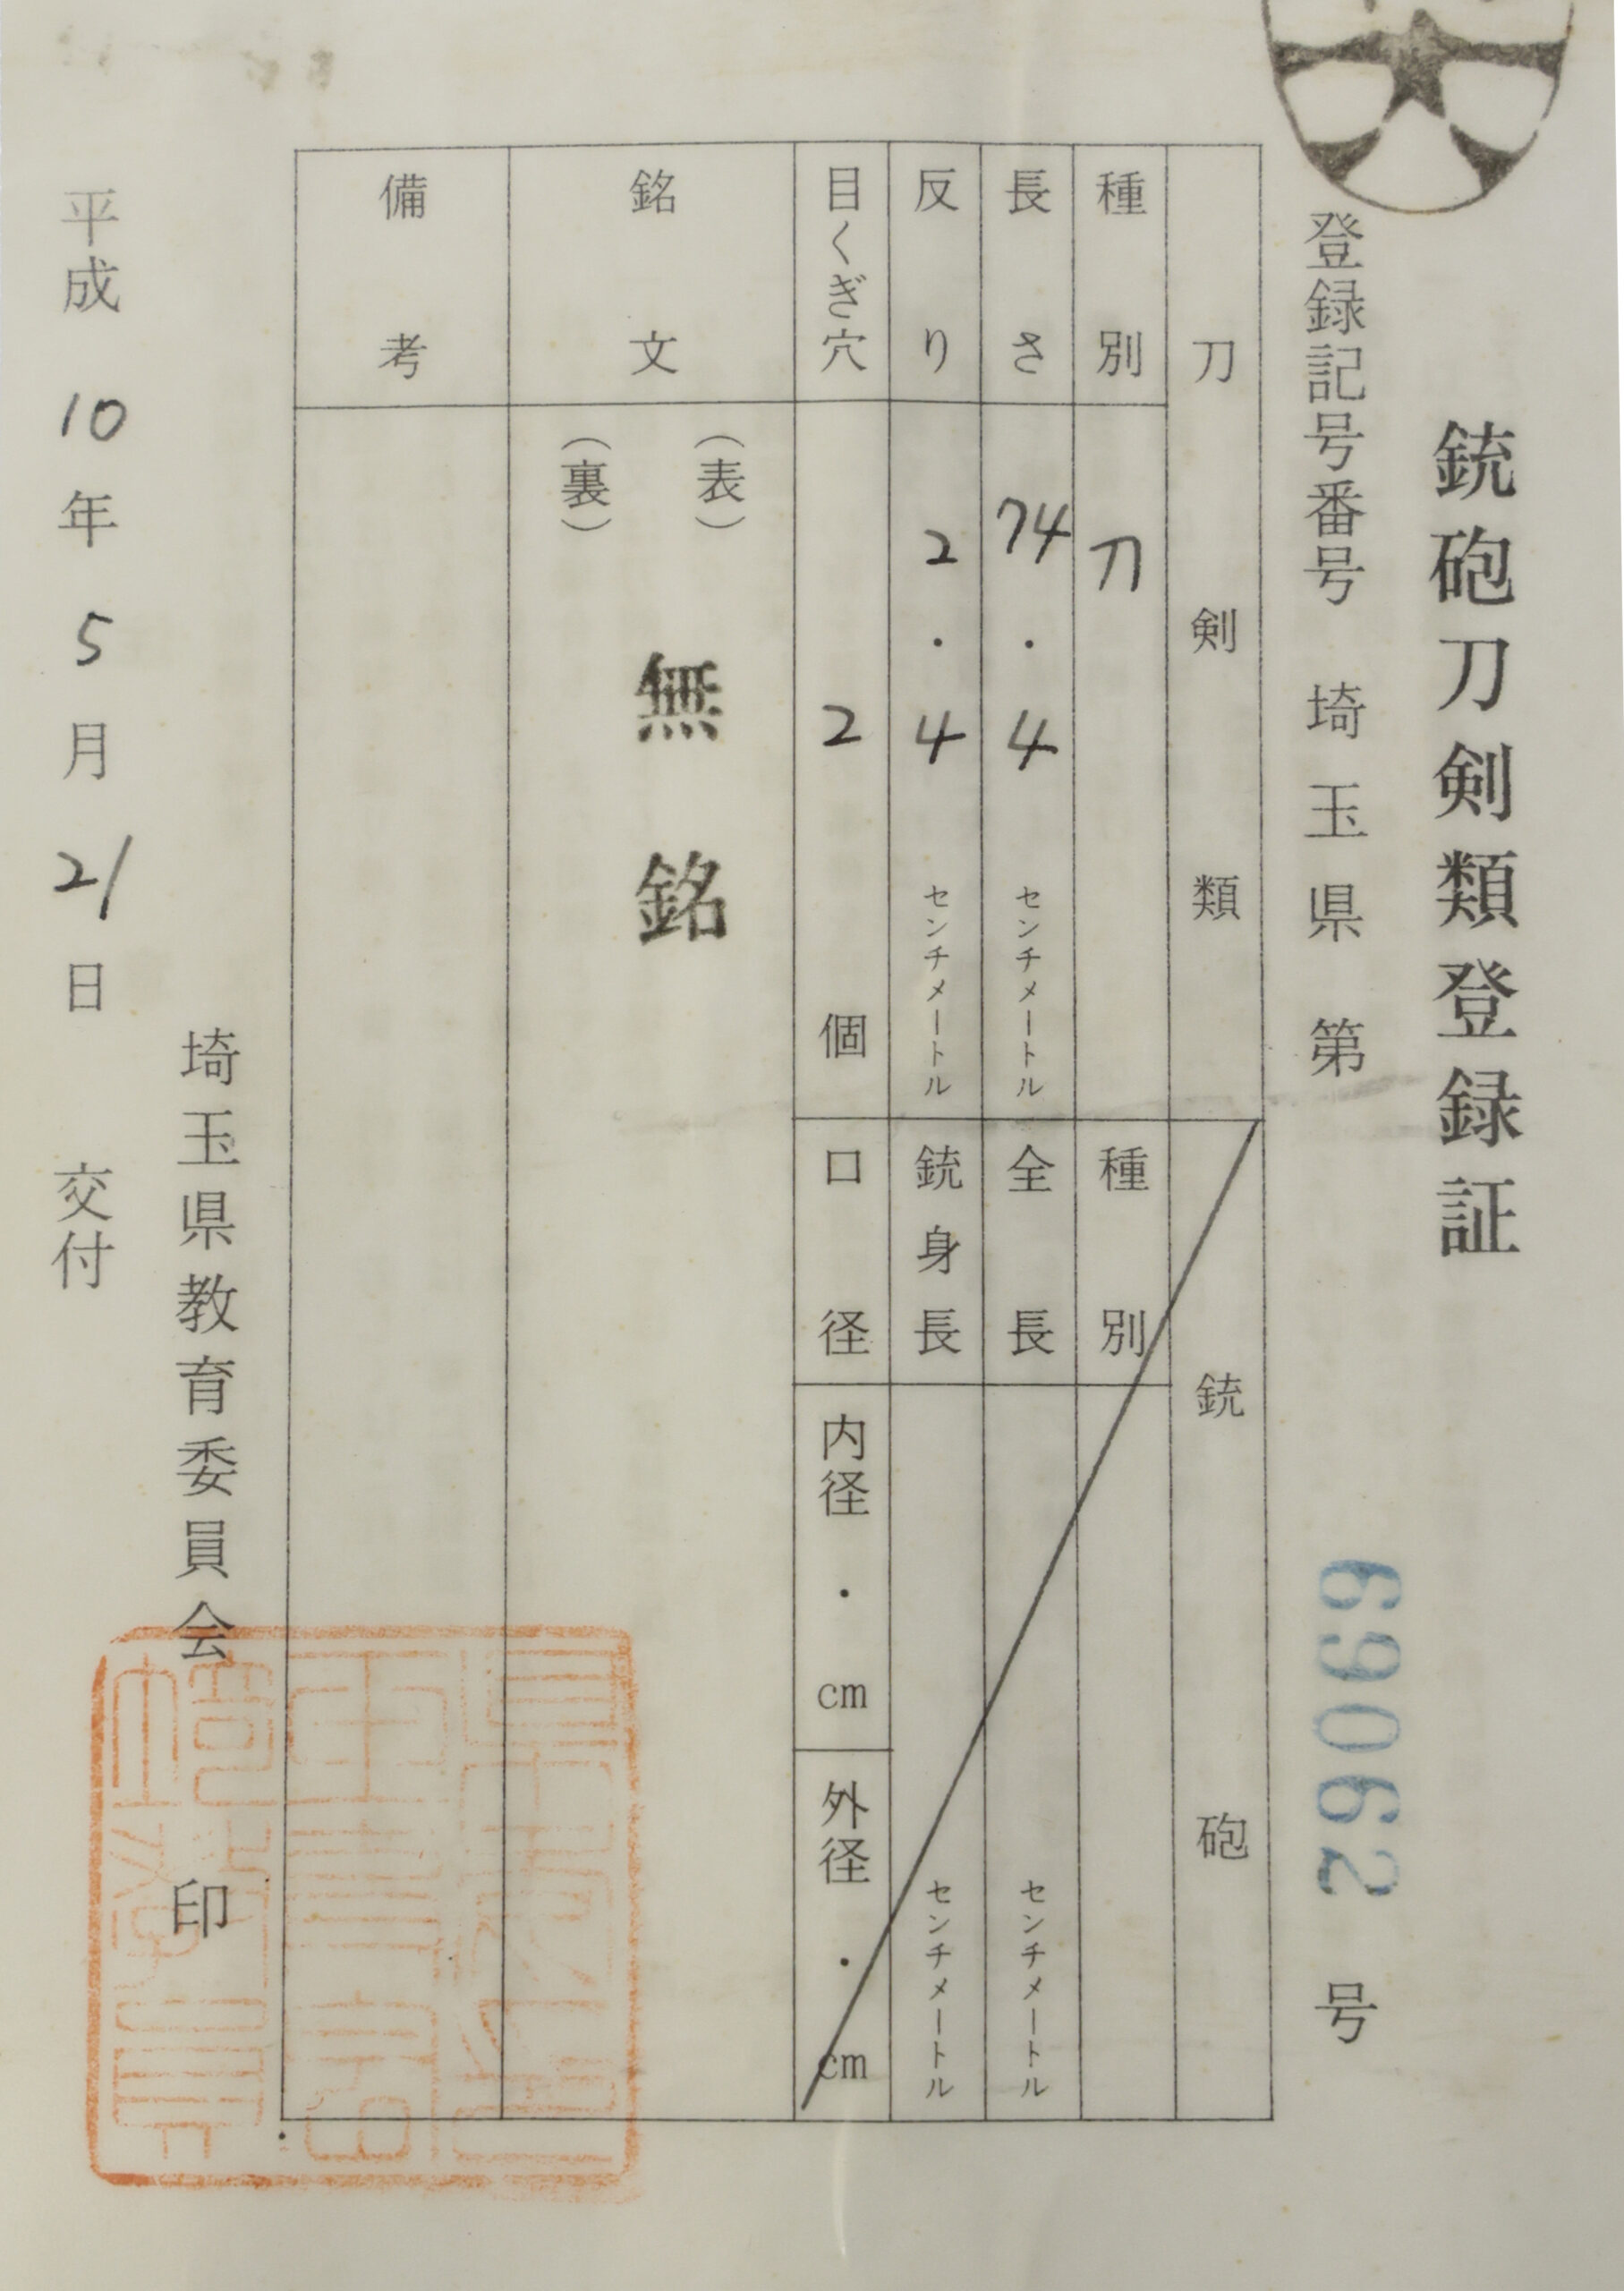 銃砲刀剣類登録証
登録記号番号 埼玉県 第 69062 号
刀剣類
種別 刀
長さ 74.4 センチメートル
反り 2.4 センチメートル
目くぎ穴 2 個
銃砲
種別
全長 センチメートル
銃身長 センチメートル
口径 内径 ・ cm 外径 ・ cm
銘文 (表) 無銘
(裏)
備考
埼玉県教育委員会 印
平成 10 年 5 月 21 日 交付